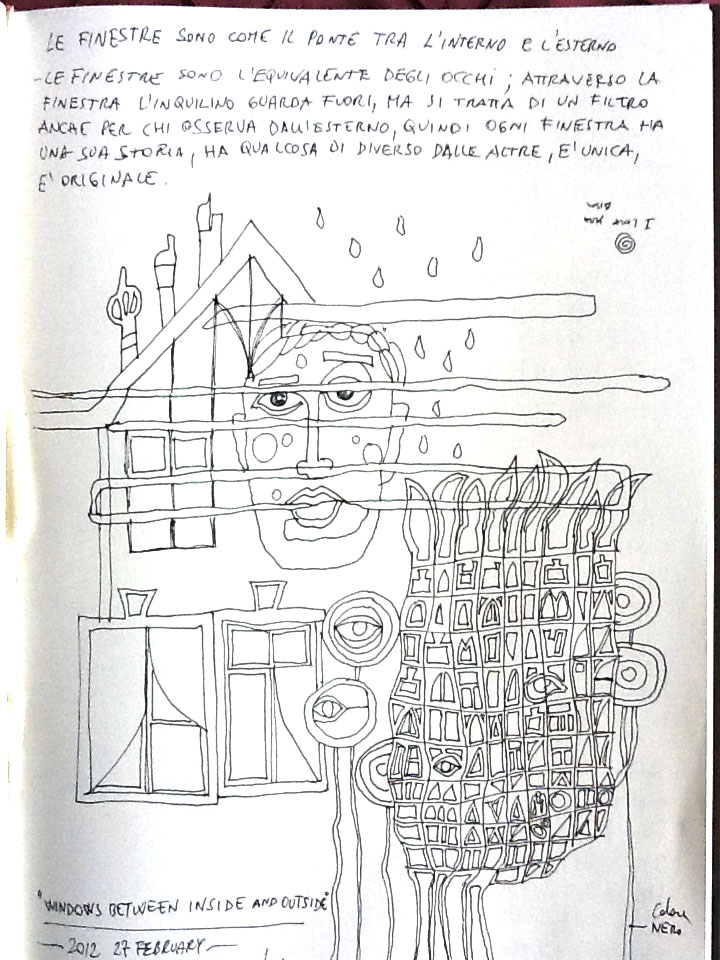 LE FINESTRE SONO COME IL PONTE TRA L'INTERNO E L'ESTERNO
-LE FINESTRE SONO L'EQUIVALENTE DEGLI OCCHI; ATTRAVERSO LA
FINESTRA L'INQUILINO GUARDA FUORI, MA SI TRATTA DI UN FILTRO
ANCHE PER CHI OSSERVA DALL'ESTERNO, QUINDI OGNI FINESTRA HA
UNA SUA STORIA, HA QUALCOSA DI DIVERSO DALLE ALTRE, E' UNICA,
E' ORIGINALE.
"WINDOWS BETWEEN INSIDE AND OUTSIDE"
2012 27 FEBRUARY
NERO